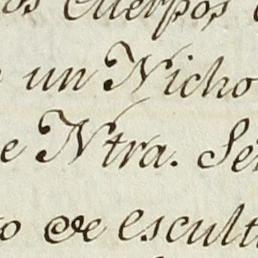 os Cuerpos
un Nicho
e Ntra. Se
o de escult